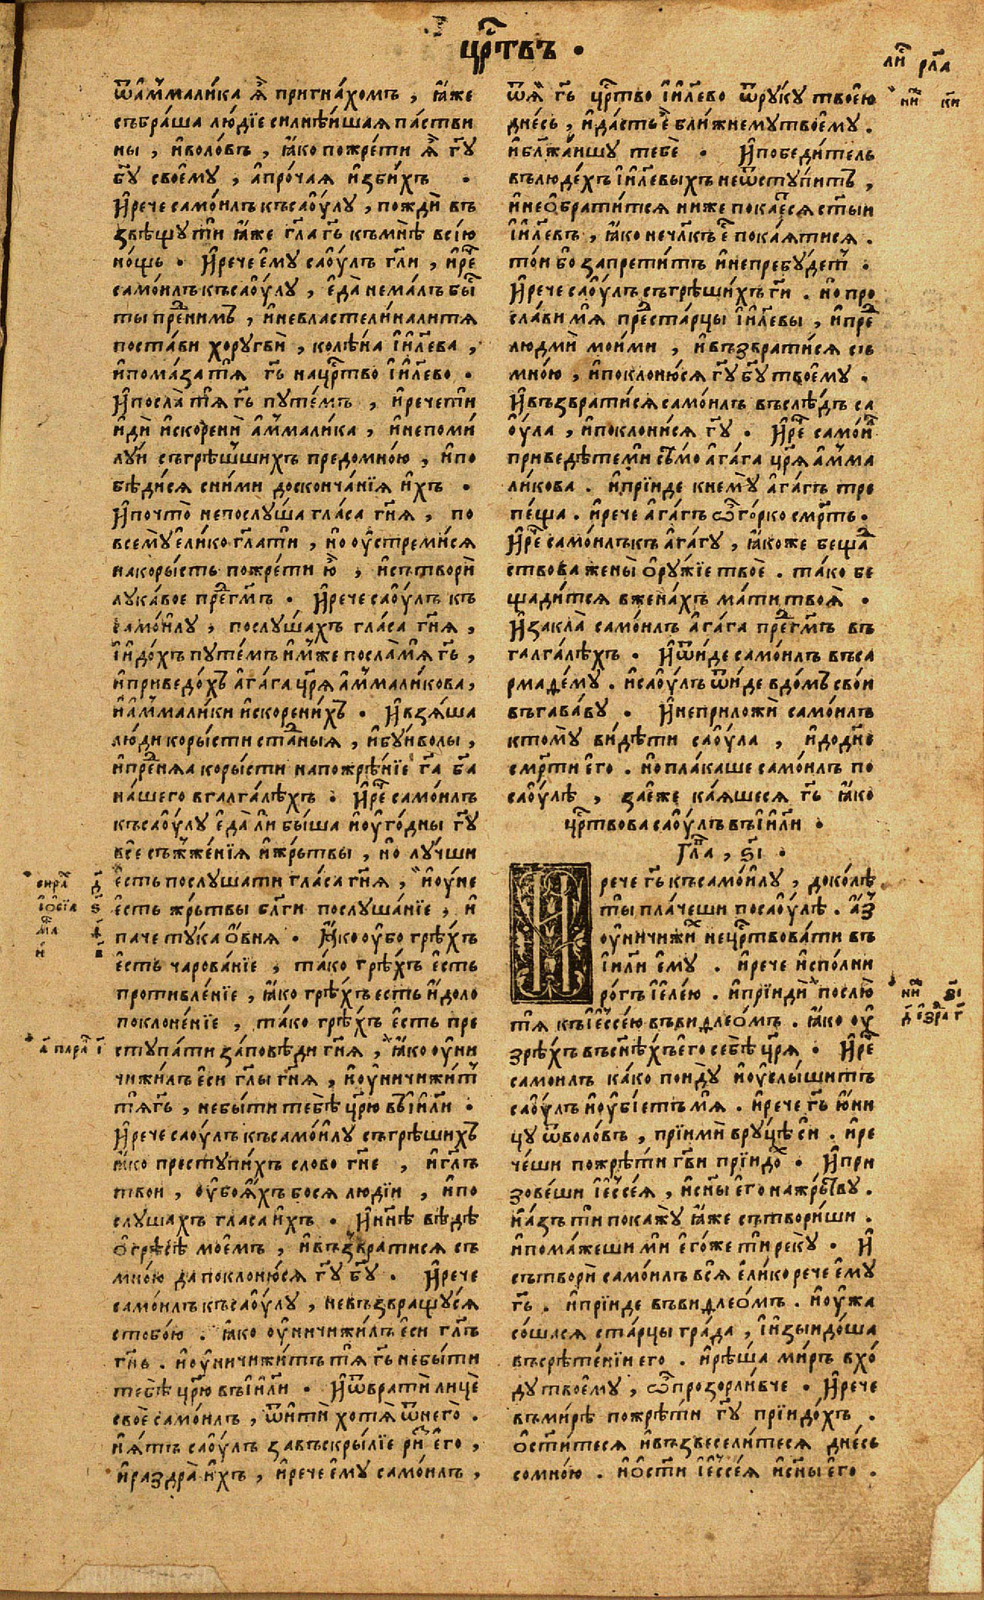 цр҃твъ ·
ли҃ рл҃а
ѿа̓м̾мали́ка ѧ҆̀ пригна́хомъ , ꙗ҆́же
събра́ша лю́дїе силнѣ́ишаѧ па́стви
ны , и҆воло́въ , ꙗ҆́ко пожре́ти ѧ҆̀ гд҃у
бг҃у своє҆му , а҆про́чаѧ и҆зби́хъ ·
И҆рече само́илъ къса́ꙋлу , пождѝ въ
звѣщу́ ти ꙗ҆́же гл҃а гд҃ь къмнѣ̀ всїю̀
но́щь · И҆рече є҆му саоу́лъ гл҃и , и҆рⷱ҇є
само́илъ къса́ꙋлу , є҆да̀ нема́лъ бы́
ты пре́д̾нимъ , и҆невластели́на ли тѧ
поста́ви хоругвѝ , колѣ́на і҆ил҃ева ,
и҆пома́за тѧ̀ гд҃ь нацр҃тво і҆ил҃ево ·
И҆посла̀ тѧ гд҃ь путе́мъ , и҆рече ти
и҆дѝ и҆скоренѝ а҆м̾мали́ка , и҆непоми́
луи съгрѣ́шшихъ предомно́ю , и҆по
бѣ́дисѧ сни́ми доскончанїѧ и҆́хъ ·
И҆почто̀ непослу́ша гла́са гн҃ѧ , по
всему є҆ли́ко гл҃а ти , но оу҆стреми́сѧ
нако́рысть пожре́ти ю҆̀ , и҆сътворѝ
лука́вое пре́дгм҃ъ · И҆рече саоу́лъ къ
само́илу , послу́шахъ гла́са гн҃ѧ ,
и҆и҆до́хъ путе́мъ и҆́мже посла́ мѧ гд҃ь ,
и҆приведо́хъ а҆га́га цр҃ѧ а҆м̾мали́кова ,
и҆а҆м̾мали́ки и҆скорени́хъ · И҆взѧ́ша
лю́ди коры́сти ста́дныѧ , и҆бу́иволы ,
и҆пре́внѧѧ коры́сти напожре́нїе гд҃а бг҃а
на́шего в галга́лѣхъ · И҆рⷱ҇є само́илъ
къса́ꙋлу є҆да̀ ли бы́ша и҆оу҆го́дны гд҃у
все съжже́нїѧ и҆жрътвы , но лу́чши
є҆сть послу́шати гла́са гн҃ѧ , и҆оу́не
є҆сть жрътвы бл҃ги послуша́нїе , и҆
па́че тука о́вниѧ · Ꙗ҆́ко оу҆бо грѣ́хъ
є҆сть чарова́нїе , та́ко грѣ́хъ є҆сть
противле́нїе , ꙗ҆́ко грѣ́хъ есть и҆доло
поклоне́нїе , та́ко грѣ́хъ є҆сть пре
ступа́ти за́повѣди гн҃ѧ , ꙗ҆́ко оу҆ни
чижи́лъ єси гл҃ы гн҃ѧ , и҆оу҆ничижи́т
тѧ̀ гд҃ь , небы́ти тебѣ̀ цр҃ю въ і҆ил҃и ·
И҆рече саоу́лъ късамо́илу съгрѣши́хъ
ꙗ҆́ко преступи́хъ слово гн҃е , и҆гл҃ъ
твои , оу҆боѧ́хъ босѧ лю́дїи , и҆по
слу́шахъ гласа и҆́хъ · И҆нн҃ѣ вѣ́дѣ
о҆грѣ́сѣ мое́мъ , и҆възврати́сѧ съ
мно́ю да поклоню́сѧ гд҃у бг҃у · И҆рече
само́илъ къса́ꙋлу , невъзвращу́сѧ
стобо́ю . ꙗ҆́ко оу҆ничижи́лъ є҆си гл҃ъ
гн҃ь . и҆оу҆ничижи́тъ тѧ̀ гд҃ь небы́ти
тебѣ̀ цр҃ю въ і҆ил҃и · И҆ѡбратѝ лицѐ
своє̀ само́илъ , ѿи҆тѝ хотѧ̀ ѿнего̀ .
и҆ѧ́тъ саоу́лъ за въскры́лїе ри́з є҆го ,
и҆раздра̀ и҆́хъ , и҆рече є҆му само́илъ ,
сира́
і҆ѡсїа ѕ҃
а҃ пара҃ і҃
ѿѧ̀ гд҃ь цр҃тво і҆ил҃ево ѿруку твоє́ю
дне́сь , и҆да́сть є҆̀ бли́жнему твоє҆му .
и҆бл҃жа́ишу тебѐ · И҆победи́тель
възлю́дехъ і҆ил҃евыхъ неѿступи́тъ ,
и҆необрати́тсѧ ниже пока́етсѧ ст҃ыи
і҆ил҃евъ , ꙗ҆́ко нечл҃къ є҆̀ пока́ѧтисѧ .
то́и бо запрети́тъ и҆непребу́дет ·
И҆рече саоу́лъ съгрѣши́хъ гд҃и . но про
сла́ви мѧ̀ пре́дстарцы і҆ил҃евы , и҆пре́д
людмѝ мои́ми , и҆възврати́сѧ съ
мно́ю , и҆поклоню́сѧ гд҃у бг҃у твоє́му .
И҆възврати́сѧ само́илъ въслѣ́дъ са
оу́ла , и҆поклони́сѧ гд҃у . И҆рⷱ҇є само́ил
приведѣ́теми сѣ́мо а҆га́га цр҃ѧ а҆м̾ма
ли́кова . и҆прїи́де кнемꙋ̀ а҆га́гъ тре
пе́ща . и҆рече а҆га́гъ ѽ го́рко смр҃ть ·
И҆рⷱ҇є само́илъ къ а҆га́гу , ꙗ҆́коже беща́д
ствова жены̀ о҆ру́жїе твоѐ . та́ко бе
щади́тсѧ вжена́хъ ма́ти твоѧ̀ ·
И҆закла̀ само́илъ а҆га́га пре́дгм҃ъ въ
галга́лѣхъ · И҆ѿи́де само́илъ въса
рмаде́му . и҆саоу́лъ ѿи́де вдо́мъ сво́и
въгава́ву · И҆неприложѝ само́илъ
ктому̀ ви́дѣти саоу́ла , и҆додне
смр҃ти є҆го . но пла́каше само́илъ по
саоу́лѣ , зане́же ка́ѧшесѧ гд҃ь ꙗ҆́ко
цр҃твова саоу́лъ въ і҆ил҃и ·
Гла҃ , ѕ҃і ·
И
рече гд҃ь късамо́илу , доко́лѣ
ты пла́чеши посаоу́лѣ . а҆́з
оу҆ничижи́ нецр҃твова́ти въ
і҆ил҃и є҆му . и҆рече и҆спо́лни
ро́гъ і҆єле́ю . и҆прїидѝ послю̀
тѧ̀ къ і҆єссе́ю въвиѳлео́мъ . ꙗ҆́ко оу҆
зрѣ́хъ въсн҃ѣхъ є҆го себѣ̀ цр҃ѧ · И҆рⷱ҇є
само́илъ ка́ко по́иду и҆оу҆слы́шитъ
саоу́лъ и҆оу҆бїетъ мѧ̀ . и҆рече гд҃ь ю҆́ни
цу ѿволо́въ , прїимѝ вруцѣ̀ си . и҆ре
че́ши пожрѣ́ти гд҃ви прїидо́х · И҆при
зове́ши і҆єссе́ѧ , и҆сн҃ы є҆го нажрътву .
и҆а҆́зъ ти покажу̀ ꙗ҆́же сътвори́ши .
и҆пома́жеши ми є҆го́же ти реку̀ . И҆
сътворѝ само́илъ всѧ̀ є҆ли́ко рече є҆му
гд҃ь . и҆прїи́де въвиѳлео́мъ . и҆оу҆жа
со́шасѧ ста́рцы гра́да , и҆и҆зыидо́ша
въсрѣ́тенїи его . и҆рѣ́ша ми́ръ вхо́
ду твоє́му , ѽ прозорли́вче · И҆рече
въми́рѣ пожрѣ́ти гд҃у прїидо́хъ .
о҆ст҃и́тесѧ и҆възвесели́тесѧ дне́сь
сомно́ю . и҆о҆ст҃и і҆єссе́ѧ и҆сн҃ы є҆го .